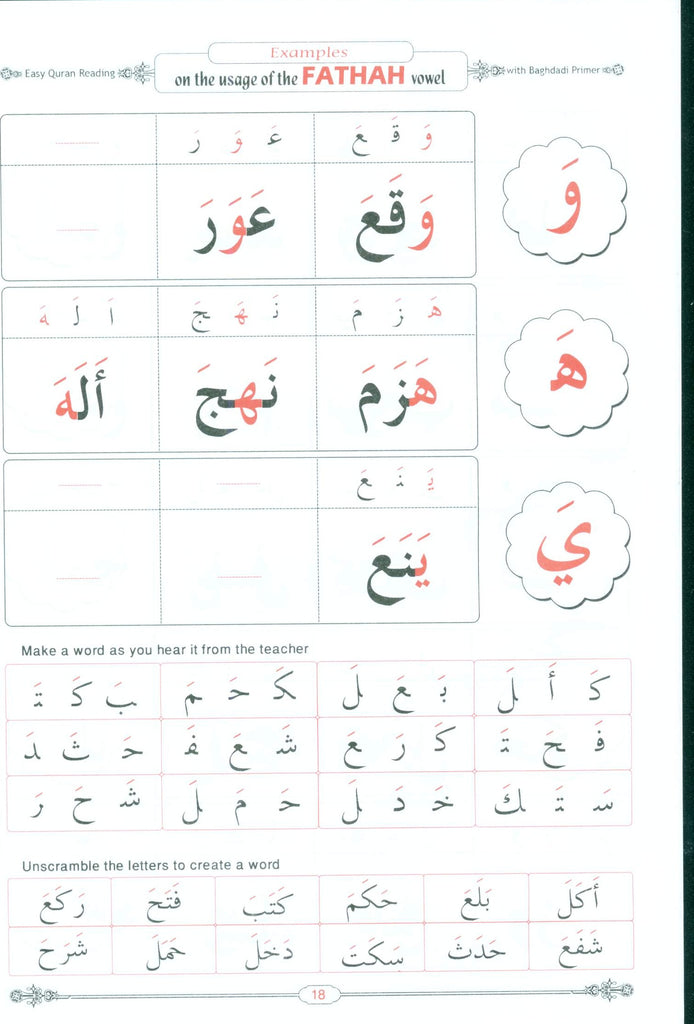 Examples
Easy Quran Reading
on the usage of the FATHAH vowel
with Baghdadi Primer
وَ
وَ قَ عَ عَ وَ رَ
وَقَعَ عَوَرَ
هَ
هَ زَ مَ نَ هَ جَ اَ لَ هَ
هَزَمَ نَهَجَ أَلَهَ
يَ
يَ نَ عَ
يَنَعَ
Make a word as you hear it from the teacher
كَ أَ لَ بَ عَ لَ كَ حَ مَ بَ كَ تَ
فَ حَ تَ كَ رَ عَ شَ عَ فَ حَ ثَ دَ
سَ تَ كَ خَ دَ لَ حَ مَ لَ شَ حَ رَ
Unscramble the letters to create a word
أَكَلَ بَلَعَ حَكَمَ كَتَبَ فَتَحَ رَكَعَ
شَفَعَ حَدَثَ سَكَتَ دَخَلَ حَمَلَ شَرَحَ
18